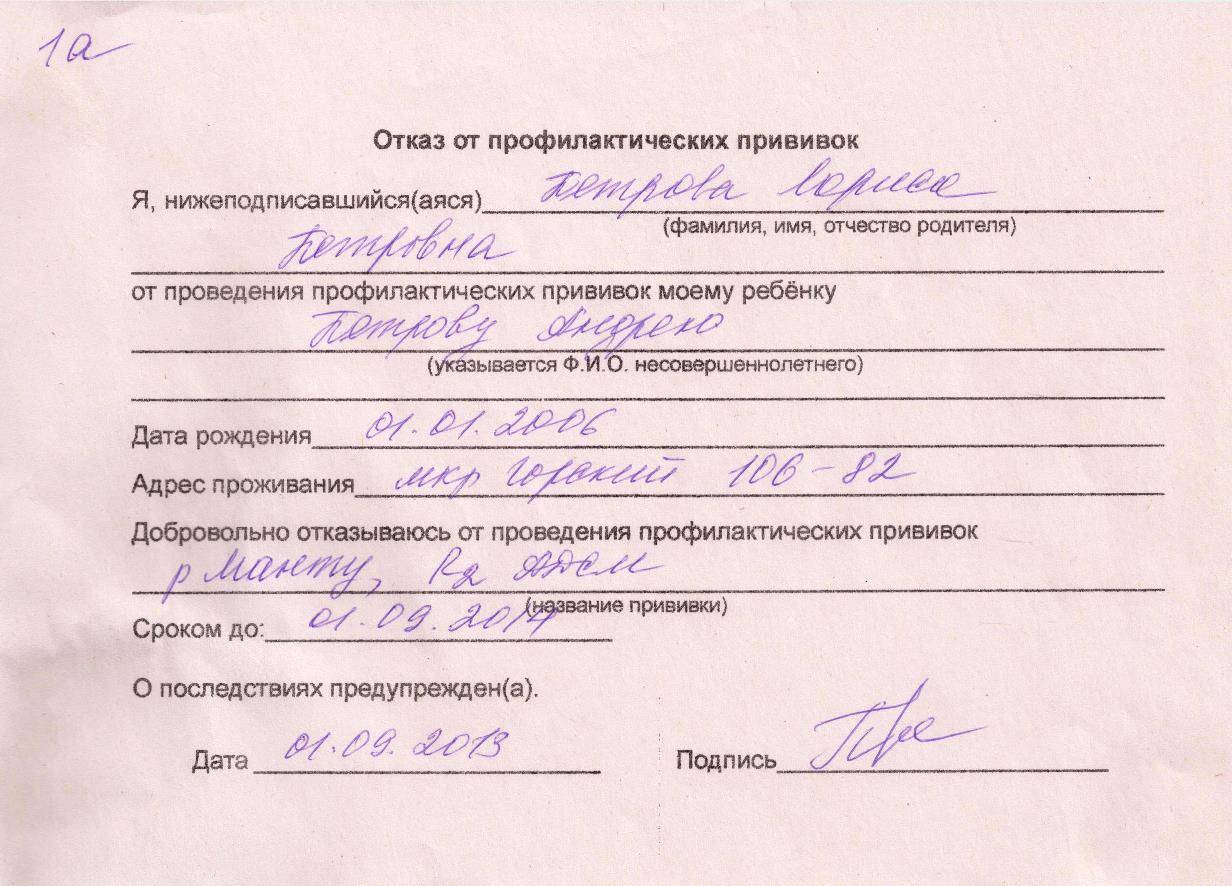 1а
Отказ от профилактических прививок
Я, нижеподписавшийся(аяся) Петрова Лариса
(фамилия, имя, отчество родителя)
Петровна
от проведения профилактических прививок моему ребёнку
Петрову Андрею
(указывается Ф.И.О. несовершеннолетнего)
Дата рождения 01.01.2006
Адрес проживания мкр Горский 106-82
Добровольно отказываюсь от проведения профилактических прививок
р Манту, R2 АДСМ
(название прививки)
Сроком до: 01.09.2014
О последствиях предупрежден(а).
Дата 01.09.2013 Подпись